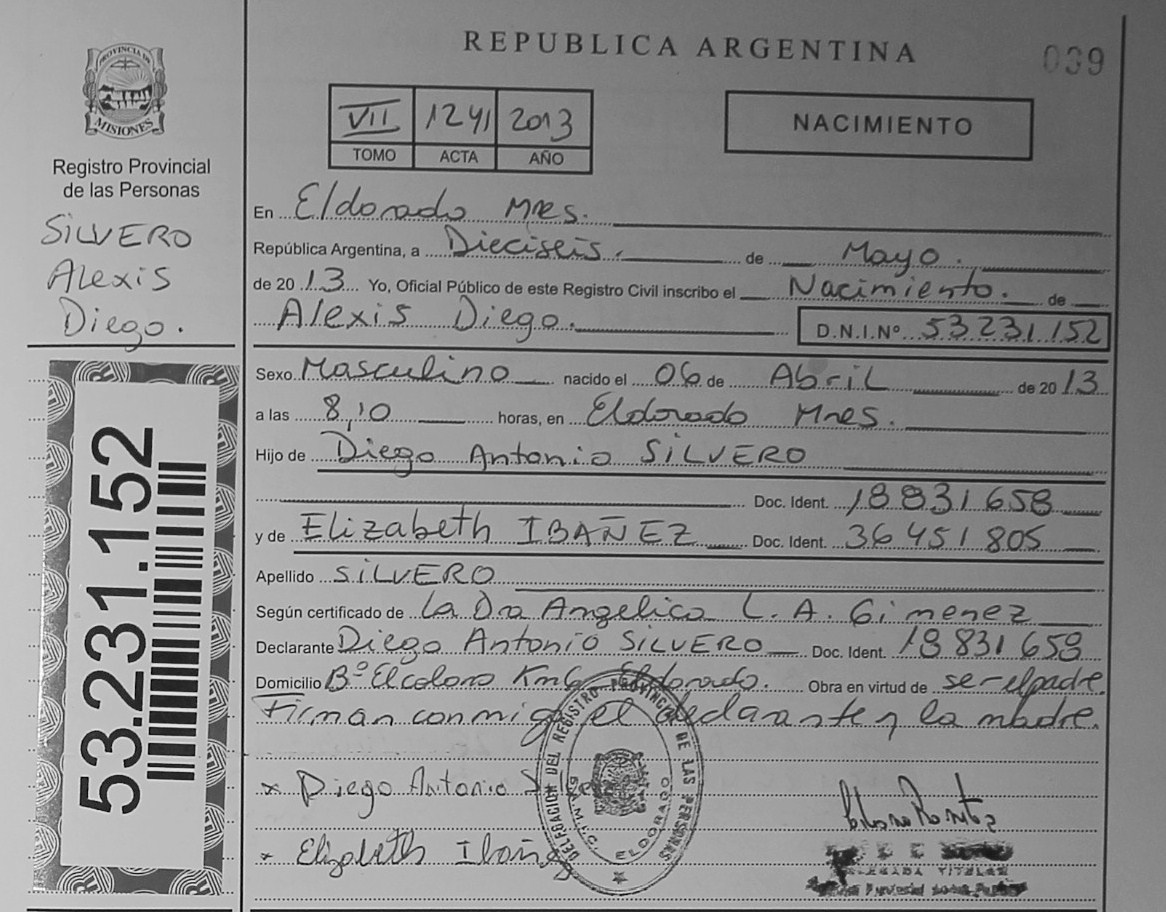 REPUBLICA ARGENTINA
039
PROVINCIA DE MISIONES
Registro Provincial
de las Personas
SILVERO
Alexis
Diego.
53.231.152
VII 1241 2013
TOMO ACTA AÑO
NACIMIENTO
En Eldorado Mnes.
República Argentina, a Dieciseis. de Mayo.
de 2013 Yo, Oficial Público de este Registro Civil inscribo el Nacimiento. de
Alexis Diego. D.N.I.Nº 53.231.152
Sexo Masculino nacido el 06 de Abril de 2013
a las 8,10 horas, en Eldorado Mnes.
Hijo de Diego Antonio SILVERO
Doc. Ident. 18831658
y de Elizabeth IBAÑEZ Doc. Ident. 36451805
Apellido SILVERO
Según certificado de La Dra Angelica L. A. Gimenez
Declarante Diego Antonio SILVERO Doc. Ident. 18831658
Domicilio Bº El colono Km6 Eldorado. Obra en virtud de ser el padre.
Firman conmigo el declarante y la madre.
x Diego Antonio
x Elizabeth Ibañez
DELEGACION DEL REGISTRO PROVINCIAL DE LAS PERSONAS
ELDORADO